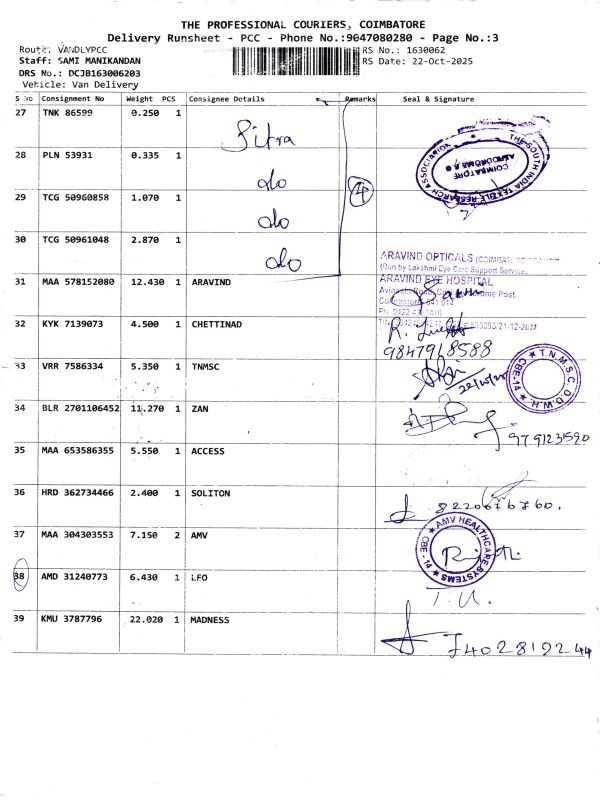 THE PROFESSIONAL COURIERS, COIMBATORE
Delivery Runsheet - PCC - Phone No.:9047080280 - Page No.:3
Route: VANDLYPCC
RS No.: 1630062
Staff: SAMI MANIKANDAN
RS Date: 22-Oct-2025
DRS No.: DCJB163006203
Vehicle: Van Delivery
S No Consignment No Weight PCS Consignee Details Remarks Seal & Signature
27 TNK 86599 0.250 1 Sitra
28 PLN 53931 0.335 1 do
29 TCG 50960858 1.070 1 do
30 TCG 50961048 2.870 1 do
4
THE SOUTH INDIA TEXTILE RESEARCH ASSOCIATION
COIMBATORE
ARAVIND OPTICALS
(Run by Lakshmi Eye Care Support Service
ARAVIND EYE HOSPITAL
31 MAA 578152080 12.430 1 ARAVIND
32 KYK 7139073 4.500 1 CHETTINAD
9847968588
33 VRR 7586334 5.350 1 TNMSC
22/10/25
T.N.M.S.C. D.D.W.H. CBE-14
34 BLR 2701106452 11.270 1 ZAN
9791231590
35 MAA 653586355 5.550 1 ACCESS
36 HRD 362734466 2.400 1 SOLITON
8220676760.
37 MAA 304303553 7.150 2 AMV
AMV HEALTHCARE SYSTEMS CBE - 14
38 AMD 31240773 6.430 1 LEO
T.U.
39 KMU 3787796 22.020 1 MADNESS
7402812244